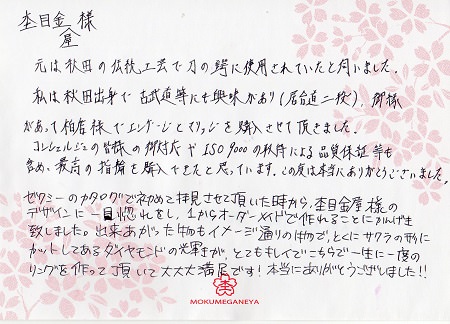 杢目金屋 様
元は秋田の伝統工芸で刀の鍔に使用されていたと伺いました。
私は秋田出身で古武道等にも興味があり(居合道二段)、御縁
があって柏店様でエンゲージとマリッジを購入させて頂きました。
コンシェルジュの皆様の御対応やISO9000の取得による品質保証等も
含め、最高の指輪を購入できたと思っています。この度は本当にありがとうございました。
ゼクシーのカタログで初めて拝見させて頂いた時から、杢目金屋様の
デザインに一目惚れをし、1からオーダーメイドで作れることにかんげき
致しました。出来あがった物もイメージ通りの物で、とくにサクラの形に
カットしてあるダイヤモンドの光輝が、とてもキレイでこちらで一生に一度の
リングを作って頂いて大大大満足です!本当にありがとうございました!!
MOKUMEGANEYA